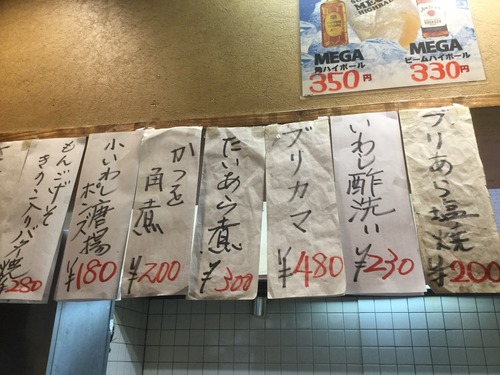 MEGA
HIGHBALL
MEGA
角ハイボール
350円
MEGA
ビームハイボール
330円
ブリあら塩焼
¥200
いわし酢洗い
¥230
ブリカマ
¥480
たいあら煮
¥300
かつを
角煮
¥200
小いわし唐揚
ポン酢
¥180
もんごげそ
きのこ入りバター焼
¥280